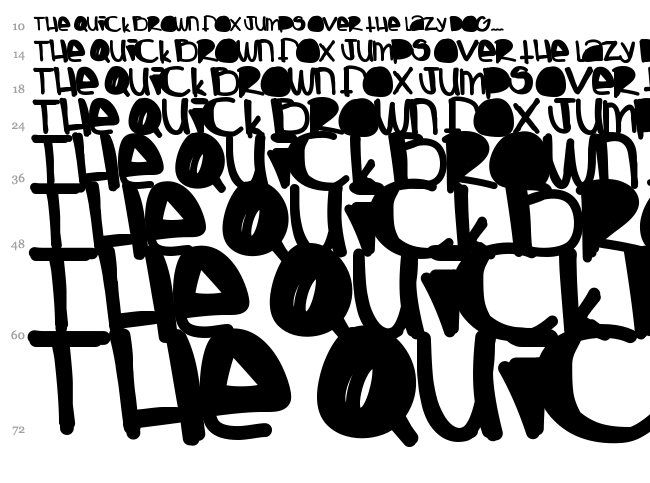 10 THe QUiCk BROWn FOX JUmPS OVeR tHe LaZy DOG...
14 THe QUiCk BROWn FOX JUmPS OVeR tHe LaZy
18 THe QUiCk BROWn FOX JUmPS OVeR
24 THe QUiCk BROWn FOX JUm
36 THe QUiCk BROWn
48 THe QUiCk BR
60 THe QUiCk
72 THe QUiC